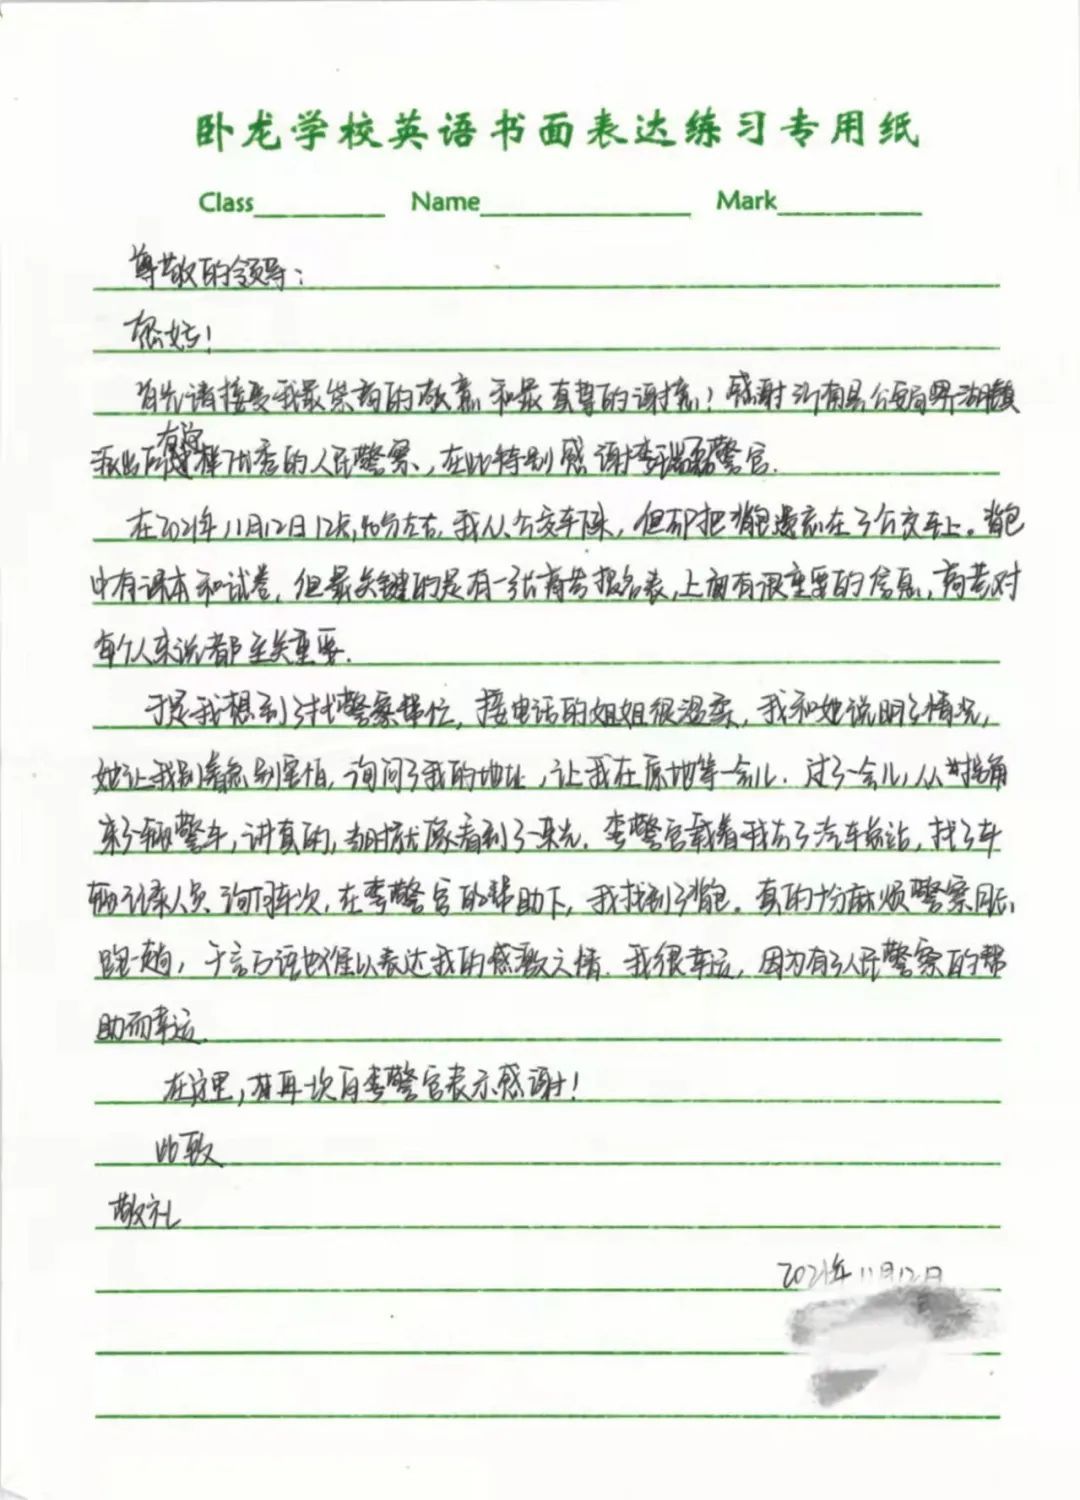 卧龙学校英语书面表达练习专用纸
Class Name Mark
尊敬的领导：
您好！
首先请接受我最崇高的敬意和最真挚的谢意！感谢沂南县公安局界湖镇
派出所有这样优秀的人民警察，在此特别感谢李警官.
在2021年11月12日12点40分左右，我从公交车下来，但却把背包遗忘在了公交车上。背包
中有课本和试卷，但最关键的是有一张高考报名表，上面有很重要的信息，高考对
每个人来说都至关重要.
于是我想到了找警察帮忙，接电话的姐姐很温柔，我和她说明了情况，
她让我别着急别害怕，询问了我的地址，让我在原地等一会儿. 过了一会儿，从拐角
来了辆警车，讲真的，当时就像看到了一束光. 李警官载着我去了汽车总站，找了车
辆记录人员询问车次，在李警官的帮助下，我找到了背包。真的十分麻烦警察同志
跑一趟，千言万语也难以表达我的感激之情. 我很幸运，因为有了人民警察的帮
助而幸运.
在这里，我再次向李警官表示感谢！
此致
敬礼
2021年11月12日